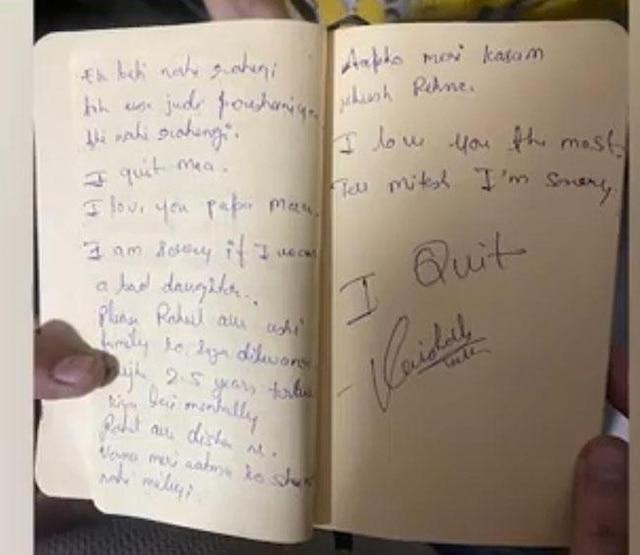 Ek beti nahi rahegi
use jude
bhi nahi rahengi.
I quit maa.
I love you papa maa
I am sorry if I
a bad daughter..
Please Rahul aur uski
family ko saja dilwana
2.5 years
kiya hai mentally
Rahul aur disha ne.
Varna meri aatma ko
nahi milegi
Aapko meri kasam
khush Rehna.
I love you the most.
Tell mitesh I'm sorry
I Quit